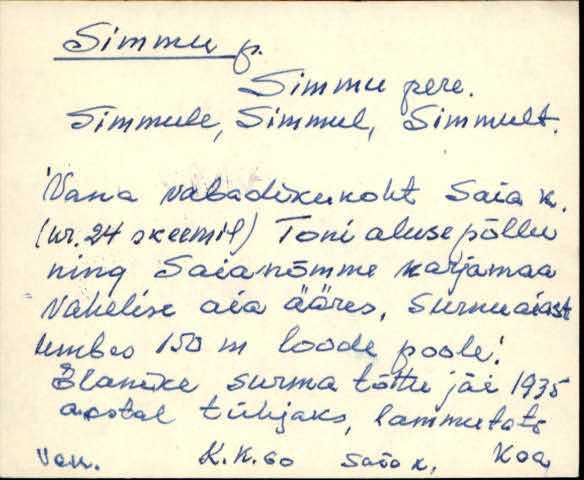 Simmu p.
Simmu pere.
Simmule, Simmul, Simmult.
Vana vabadikukoht Saia k.
(nr. 24 skeemil) Toni alusepõllu
ning Saianõmme karjamaa
vahelise aia ääres, surnuaiast
umbes 150 m loode poole.
Elanike surma tõttu jäi 1935
aastal tühjaks, lammutati
K. K. 60